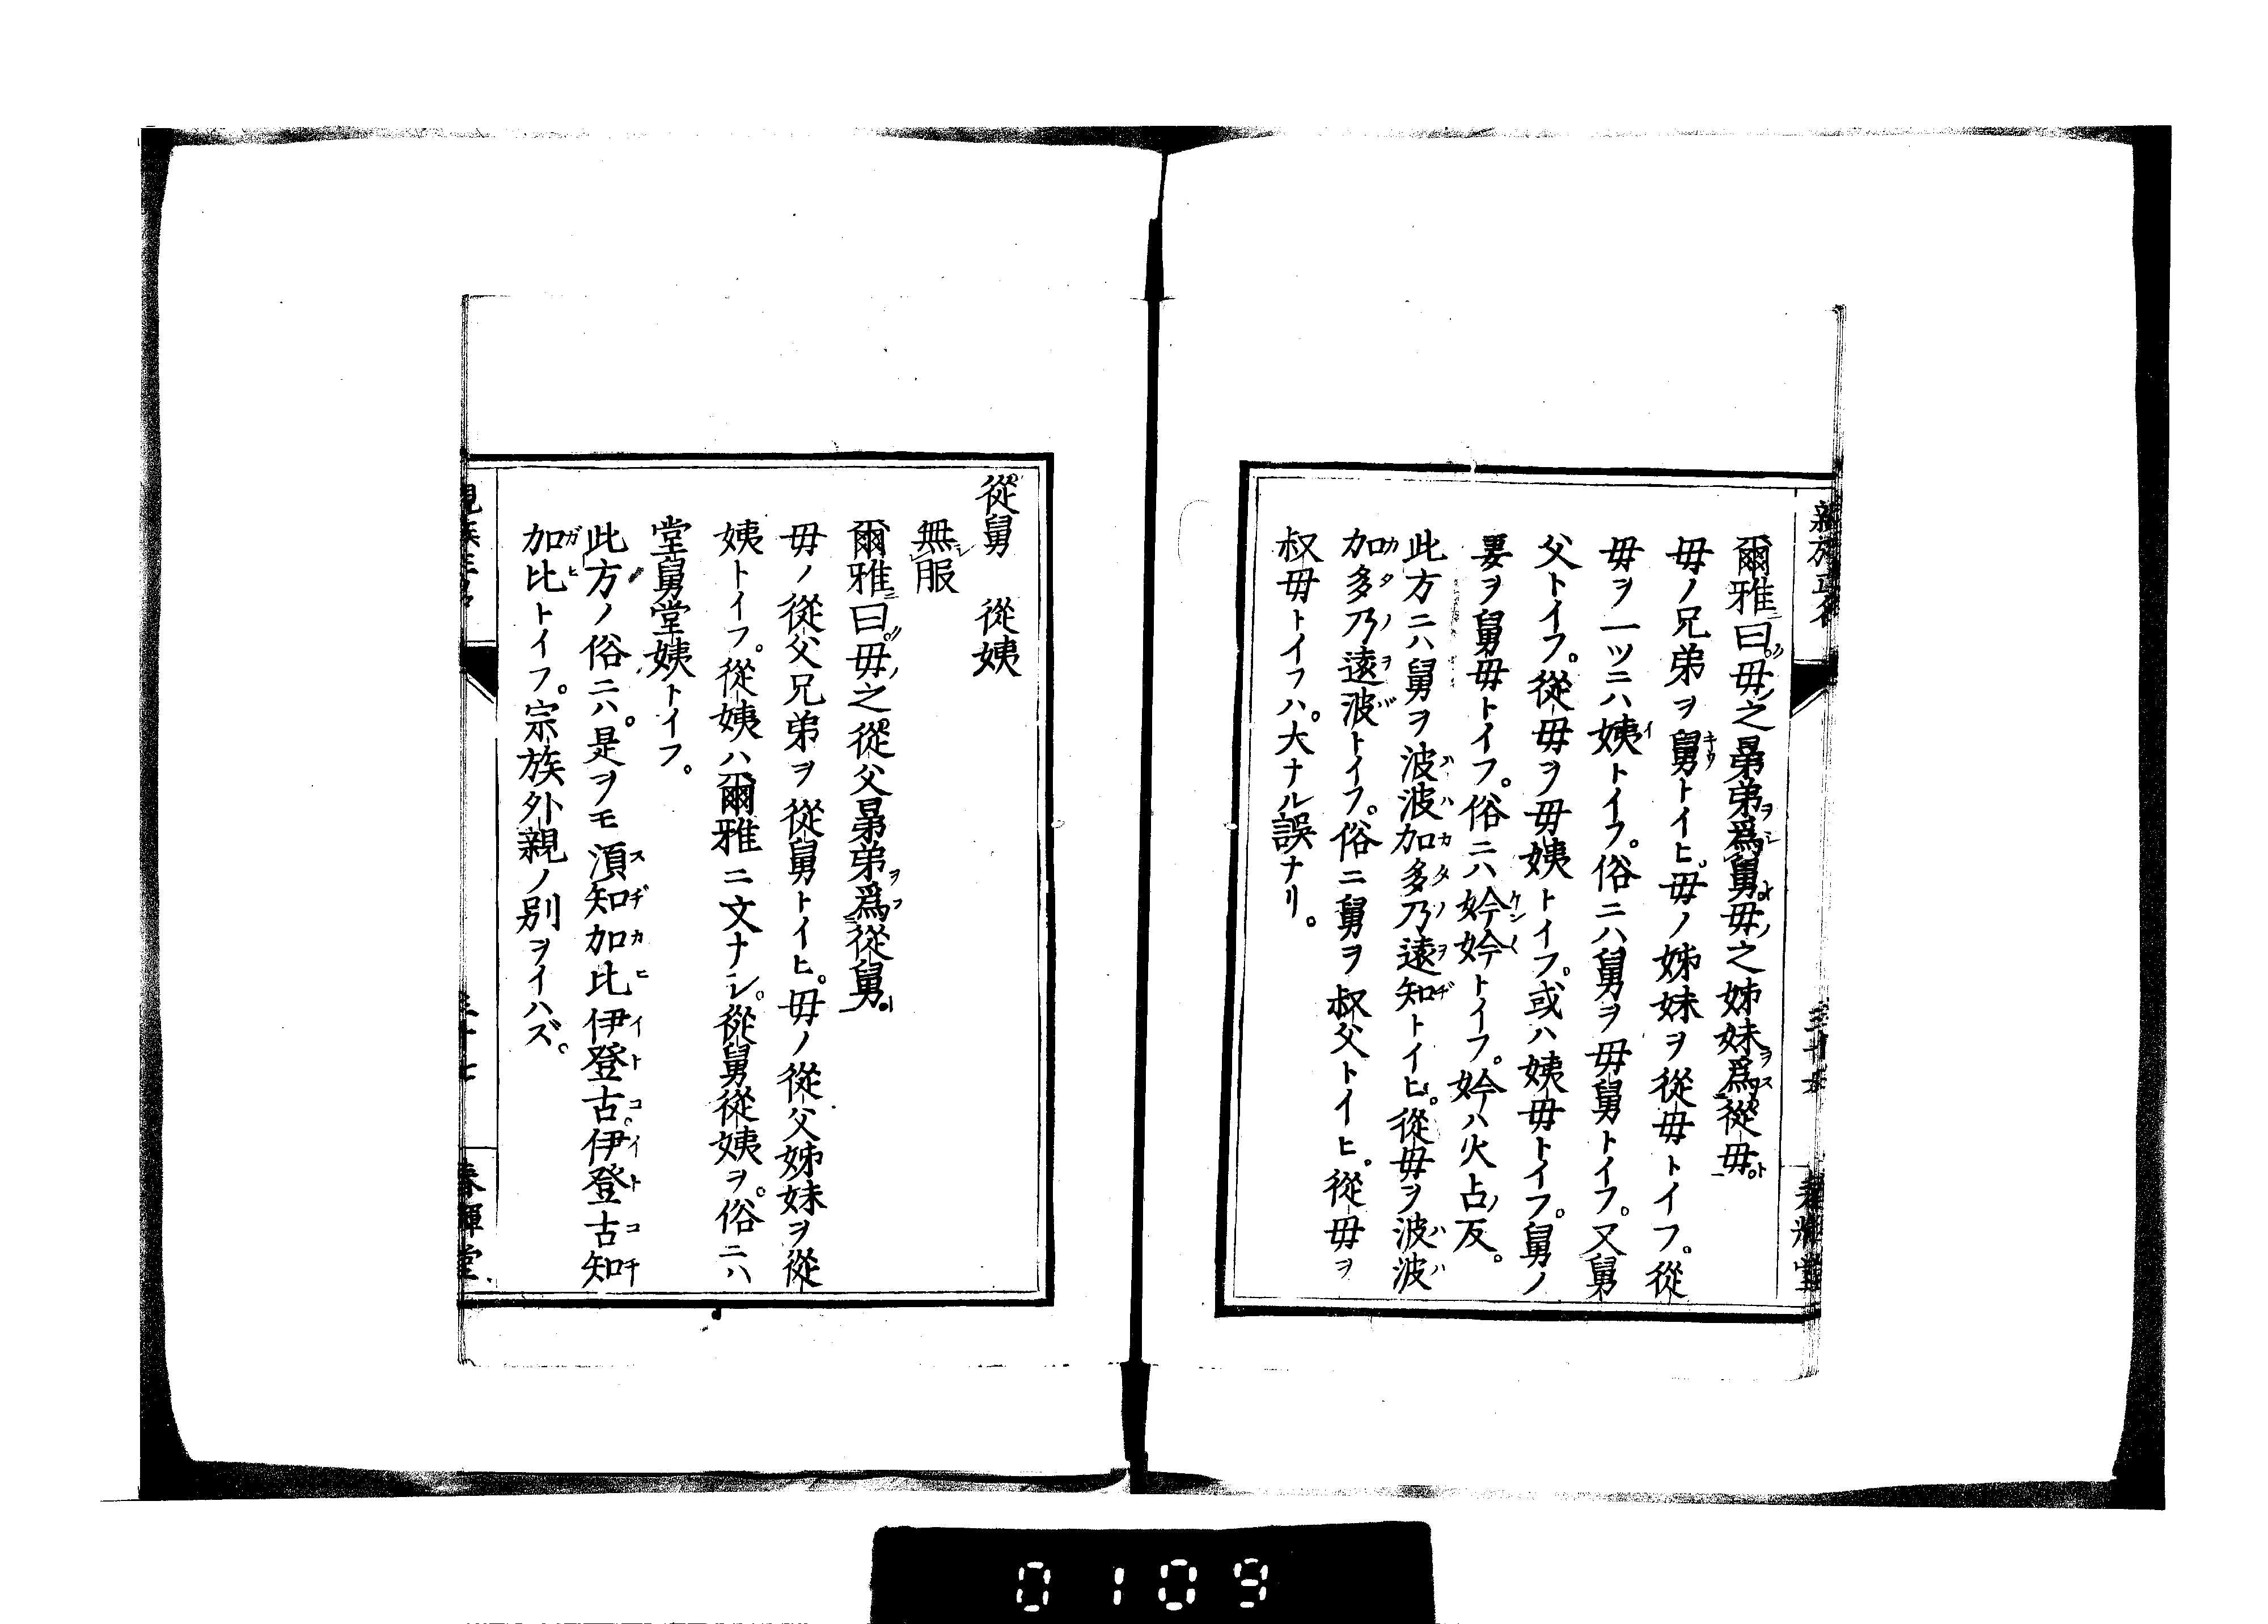 爾雅曰。母之晜弟爲舅母之姊妹爲從母。
母ノ兄弟ヲ舅トイヒ。母ノ姊妹ヲ從母トイフ。從
母ヲ一ツニハ姨トイフ。俗ニハ舅ヲ母舅トイフ。又舅
父トイフ。從母ヲ母姨トイフ。或ハ姨母トイフ。舅ノ
妻ヲ舅母トイフ。俗ニハ妗妗トイフ。妗ハ火占ノ反。
此方ニハ舅ヲ波波加多乃遠知トイヒ。從母ヲ波波
加多乃遠波トイフ。俗ニ舅ヲ叔父トイヒ。從母ヲ
叔母トイフハ。大ナル誤ナリ。
從舅 從姨
無服
爾雅曰。母之從父晜弟爲從舅。
母ノ從父兄弟ヲ從舅トイヒ。母ノ從父姊妹ヲ從
姨トイフ。從姨ハ爾雅ニ文ナシ。從舅從姨ヲ。俗ニハ
堂舅堂姨トイフ。
此方ノ俗ニハ。是ヲモ須知加比伊登古。伊登古知
加比トイフ。宗族外親ノ別ヲイハズ。
春暉堂
0109